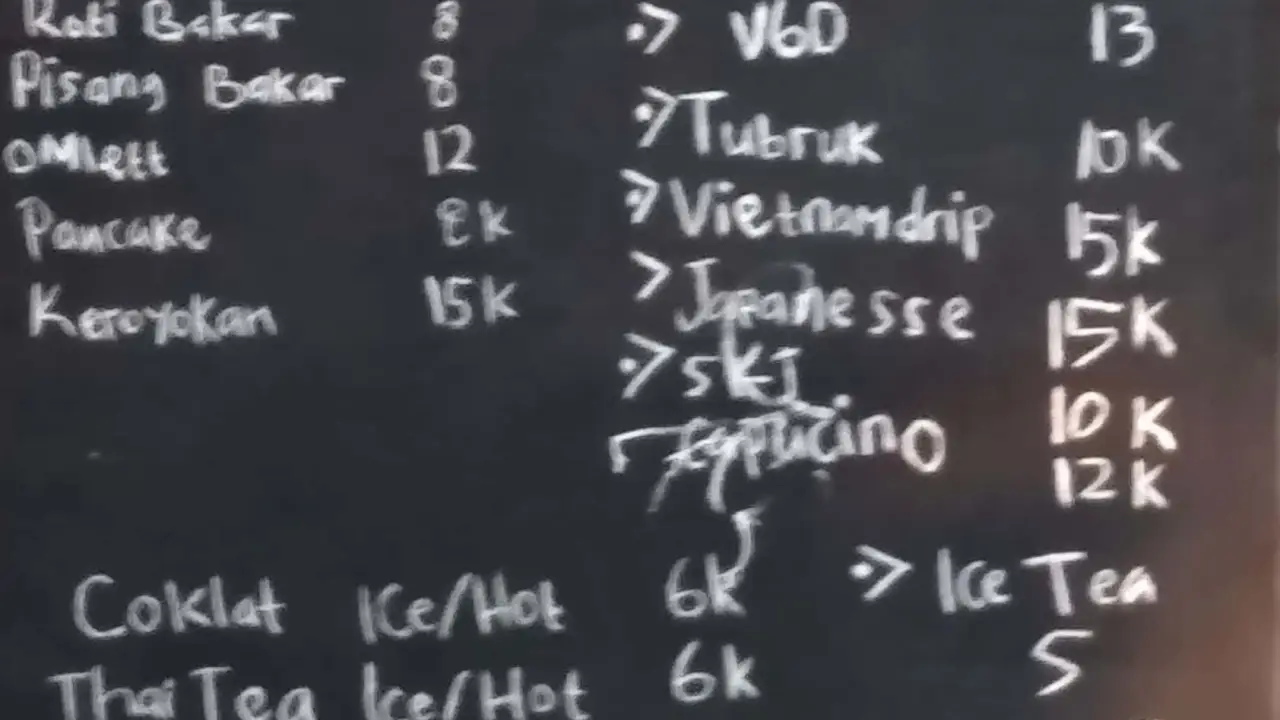 Roti Bakar 8
Pisang Bakar 8
OMlett 12
Pancake 8k
Keroyokan 15K
V60 13
Tubruk 10K
Vietnamdrip 15k
Japanesse 15K
SKJ 10 K
Capucino 12k
Coklat Ice/Hot 6k
Thai Tea Ice/Hot 6k
Ice Tea
5